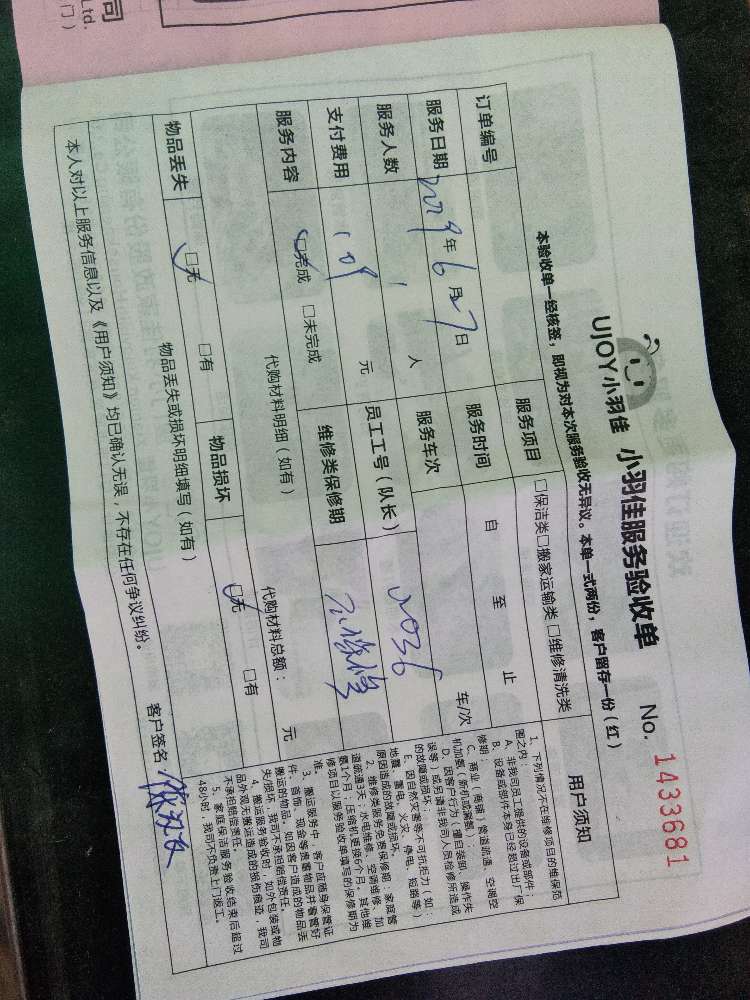 司
Ltd.
门）
UJOY小羽佳 小羽佳服务验收单 No. 1433681
本验收单一经核签，即视为对本次服务验收无异议。本单一式两份，客户留存一份（红）
订单编号 服务项目 □保洁类□搬家运输类□维修清洗类
服务日期 2019年6月27日 服务时间 自 至 止
服务人数 1 人 服务车次 车/次
支付费用 元 员工工号（队长） 2036
服务内容 □完成 □未完成 维修类保修期
代购材料明细（如有） 代购材料总额： 元
物品丢失 □无 □有 物品损坏 □无 □有
物品丢失或损坏明细填写（如有）
本人对以上服务信息以及《用户须知》均已确认无误，不存在任何争议纠纷。 客户签名：
用户须知
1、下列情况不在维修项目的维保范
围之内：
A、非我司员工提供的设备或部件；
B、设备或部件本身已经超过出厂保
修期；
C、商业（商御）管道疏通、空调空
机加氨（新机或漏氨）；
D、因客户行为（擅自装卸、操作失
误等）或另请非我司人员检修所造成
的故障或损坏；
E、因自然灾害等不可抗拒力（如：
地震、雷电、火灾、停电、短路等）
原因造成的故障或损坏。
2、维修类服务免费保修期：家庭管
道疏通3天，水电维修、空调维修、加
氨1个月，压缩机更换6个月。其他维
修项目以服务验收单填写的保修期为
准。
3、搬运服务中，客户应随身保管证
件、首饰、现金等贵重物品并看管好
搬运的物品。如因客户造成的物品丢
失或损坏，我司不承担赔偿责任。
4、搬运服务验收时，如外包装或物
品外观无搬运造成的损伤痕迹，我司
不承担赔偿责任。
5、家庭保洁服务验收结束后超过
48小时，我司不负责上门返工。